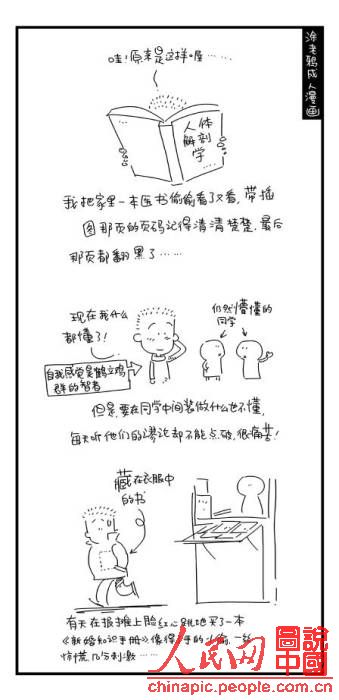 涂老鸦成人漫画
哇!原来是这样喔……
人体
解剖
学
我把家里一本医书偷偷看了又看,带插
图那页的页码记得清清楚楚.最后
那页都翻黑了……
现在我什么
都懂了!
自我感觉是鹤立鸡
群的智者
仍然懵懂的
同学
但是,要在同学中间装做什么也不懂,
每天听他们的谬论却不能点破.很痛苦!
藏在衣服中
的书
有天在报摊上脸红心跳地买了一本
《新婚知识手册》像得手的小偷,一丝
惊慌.几分刺激……
人民网
圖說中國
people.com.cn
chinapic.people.com.cn